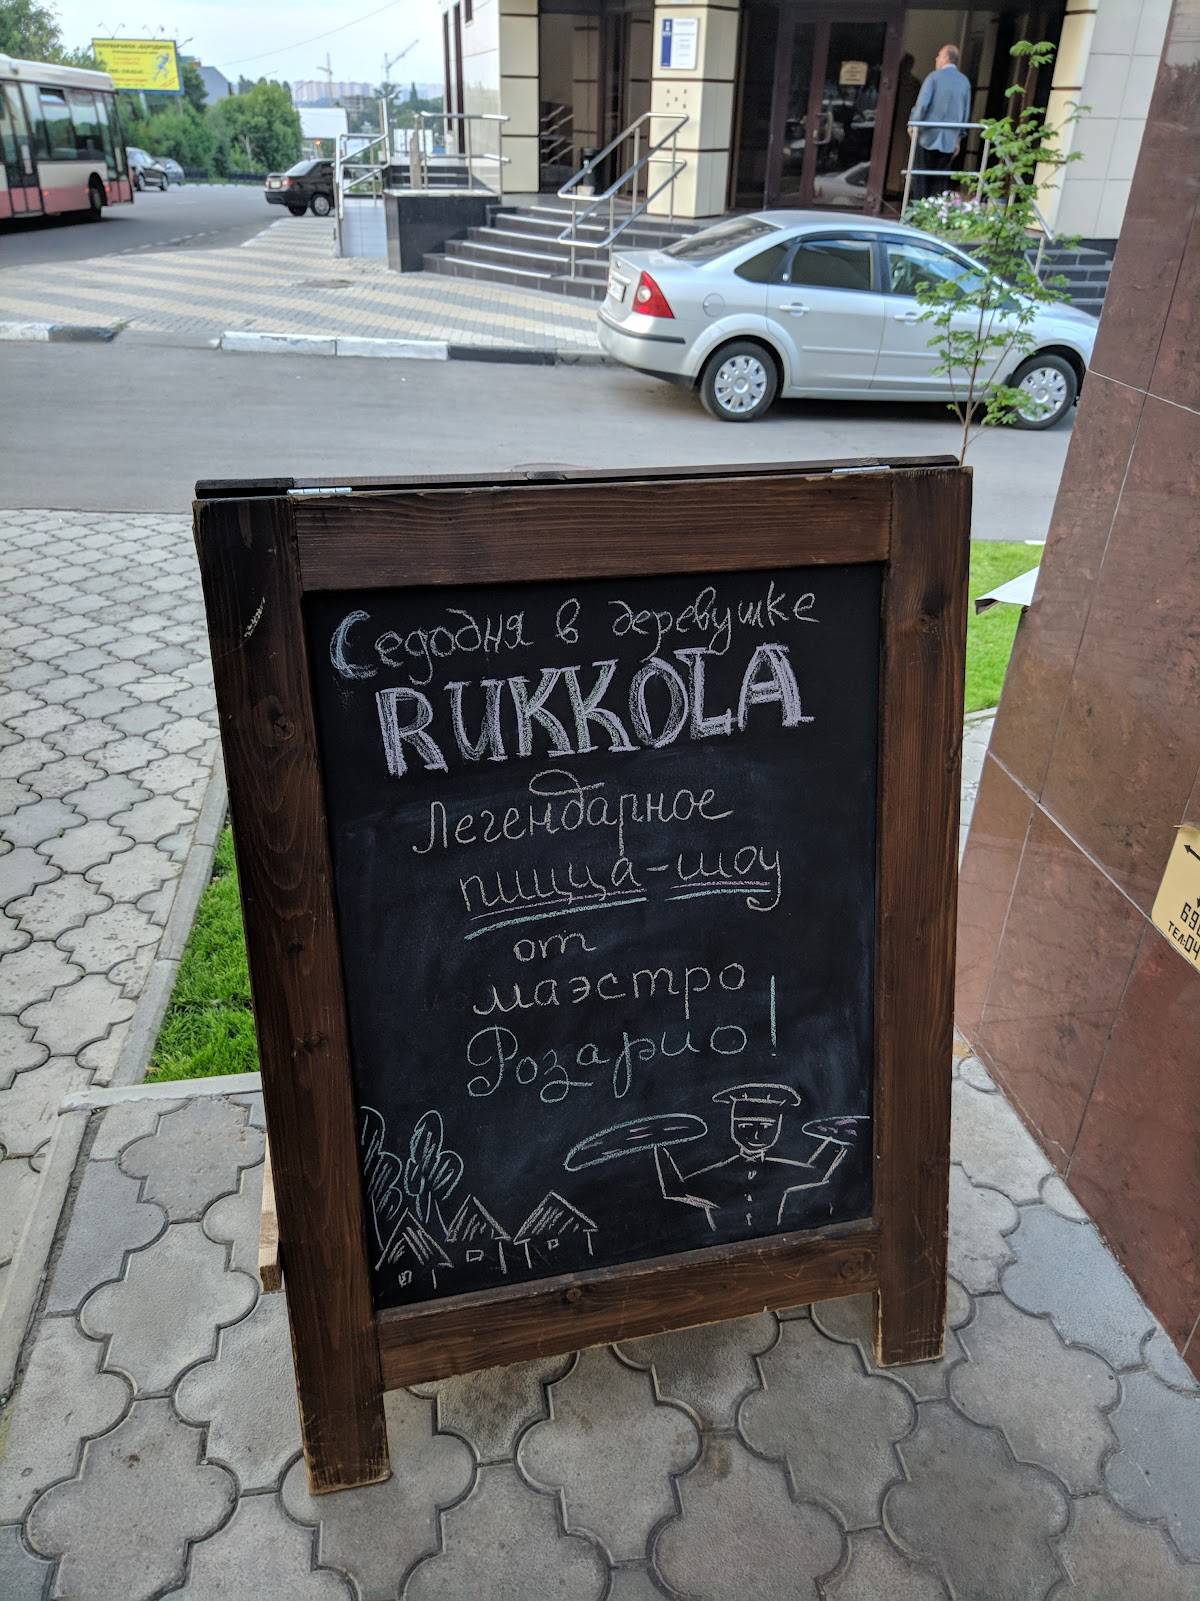 Седодня в деревушке
RUKKOLA
Легендарное
пицца-шоу
от
маэстро
Розарио!